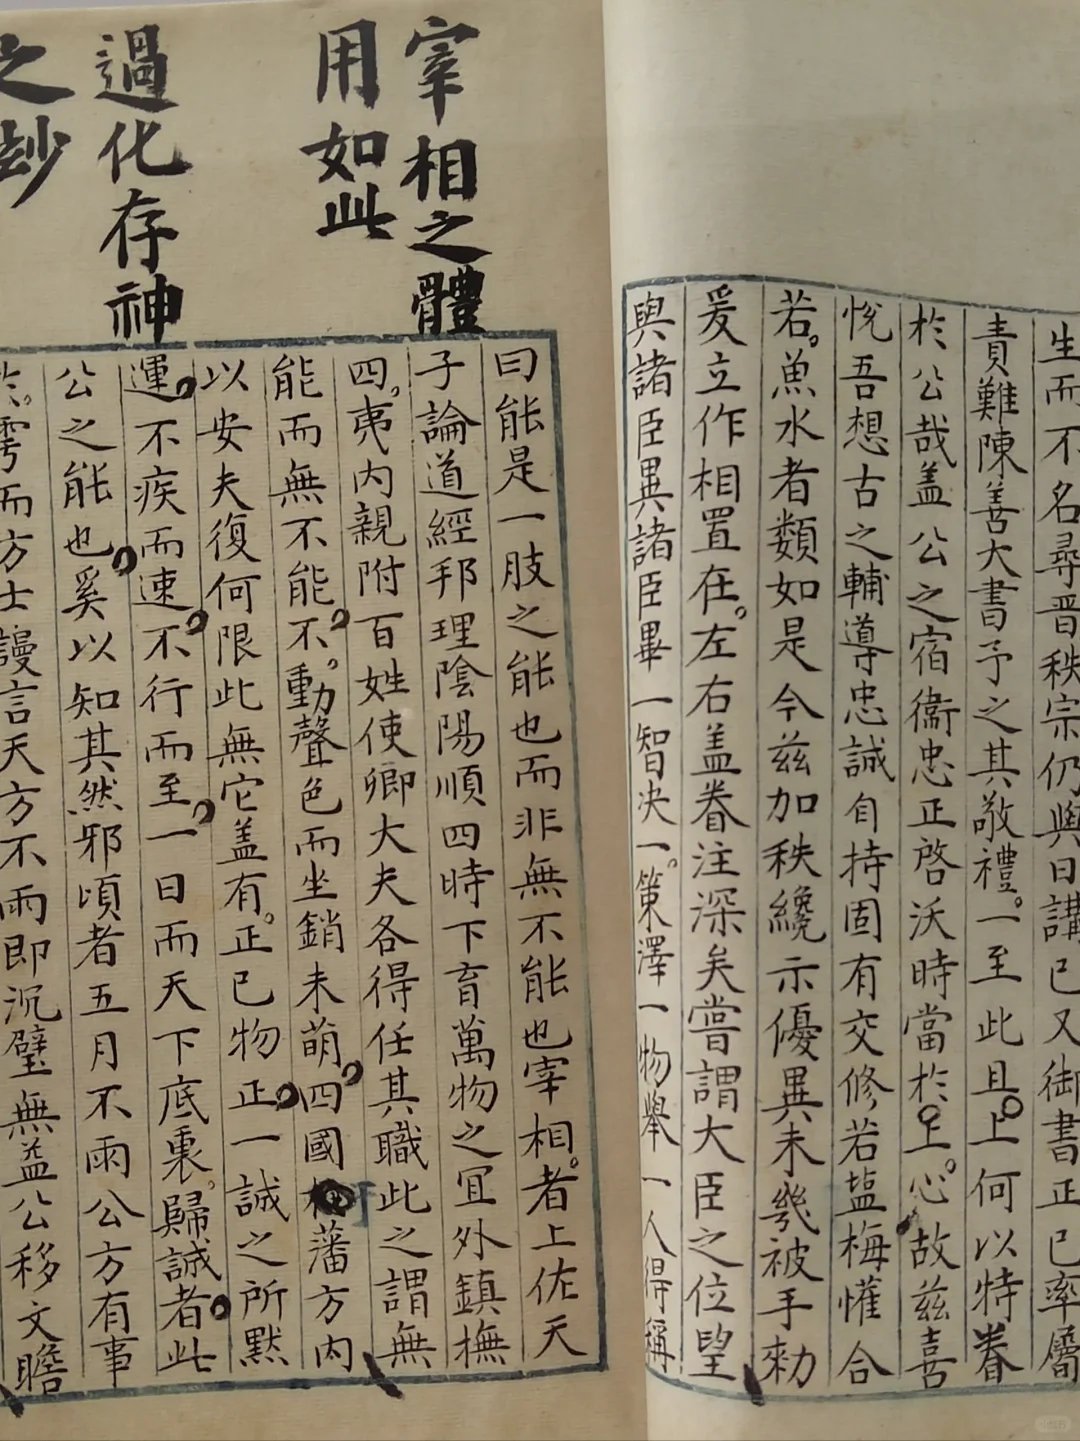 生而不名尋晋秩宗仍與日講已又御書正已率屬
責難陳善大書予之其敬禮一至此且上何以特眷
於公哉盖公之宿衞忠正啓沃時當於上心故茲喜
悅吾想古之輔導忠誠自持固有交修若塩梅懽合
若魚水者類如是今茲加秩纔示優異未幾被手勑
爰立作相置在左右盖眷注深矣嘗謂大臣之位望
與諸臣異諸臣畢一智决一策澤一物舉一人得稱
宰相之體
用如此
過化存神
之妙
曰能是一肢之能也而非無不能也宰相者上佐天
子論道經邦理陰陽順四時下育萬物之宜外鎮撫
四夷内親附百姓使卿大夫各得任其職此之謂無
能而無不能不動聲色而坐銷未萌四國藩方内
以安夫復何限此無它盖有正已物正一誠之所黙
運不疾而速不行而至一日而天下底裏歸誠者此
公之能也奚以知其然邪頃者五月不雨公方有事
於雩而方士謾言天方不雨即沉璧無益公移文瞻